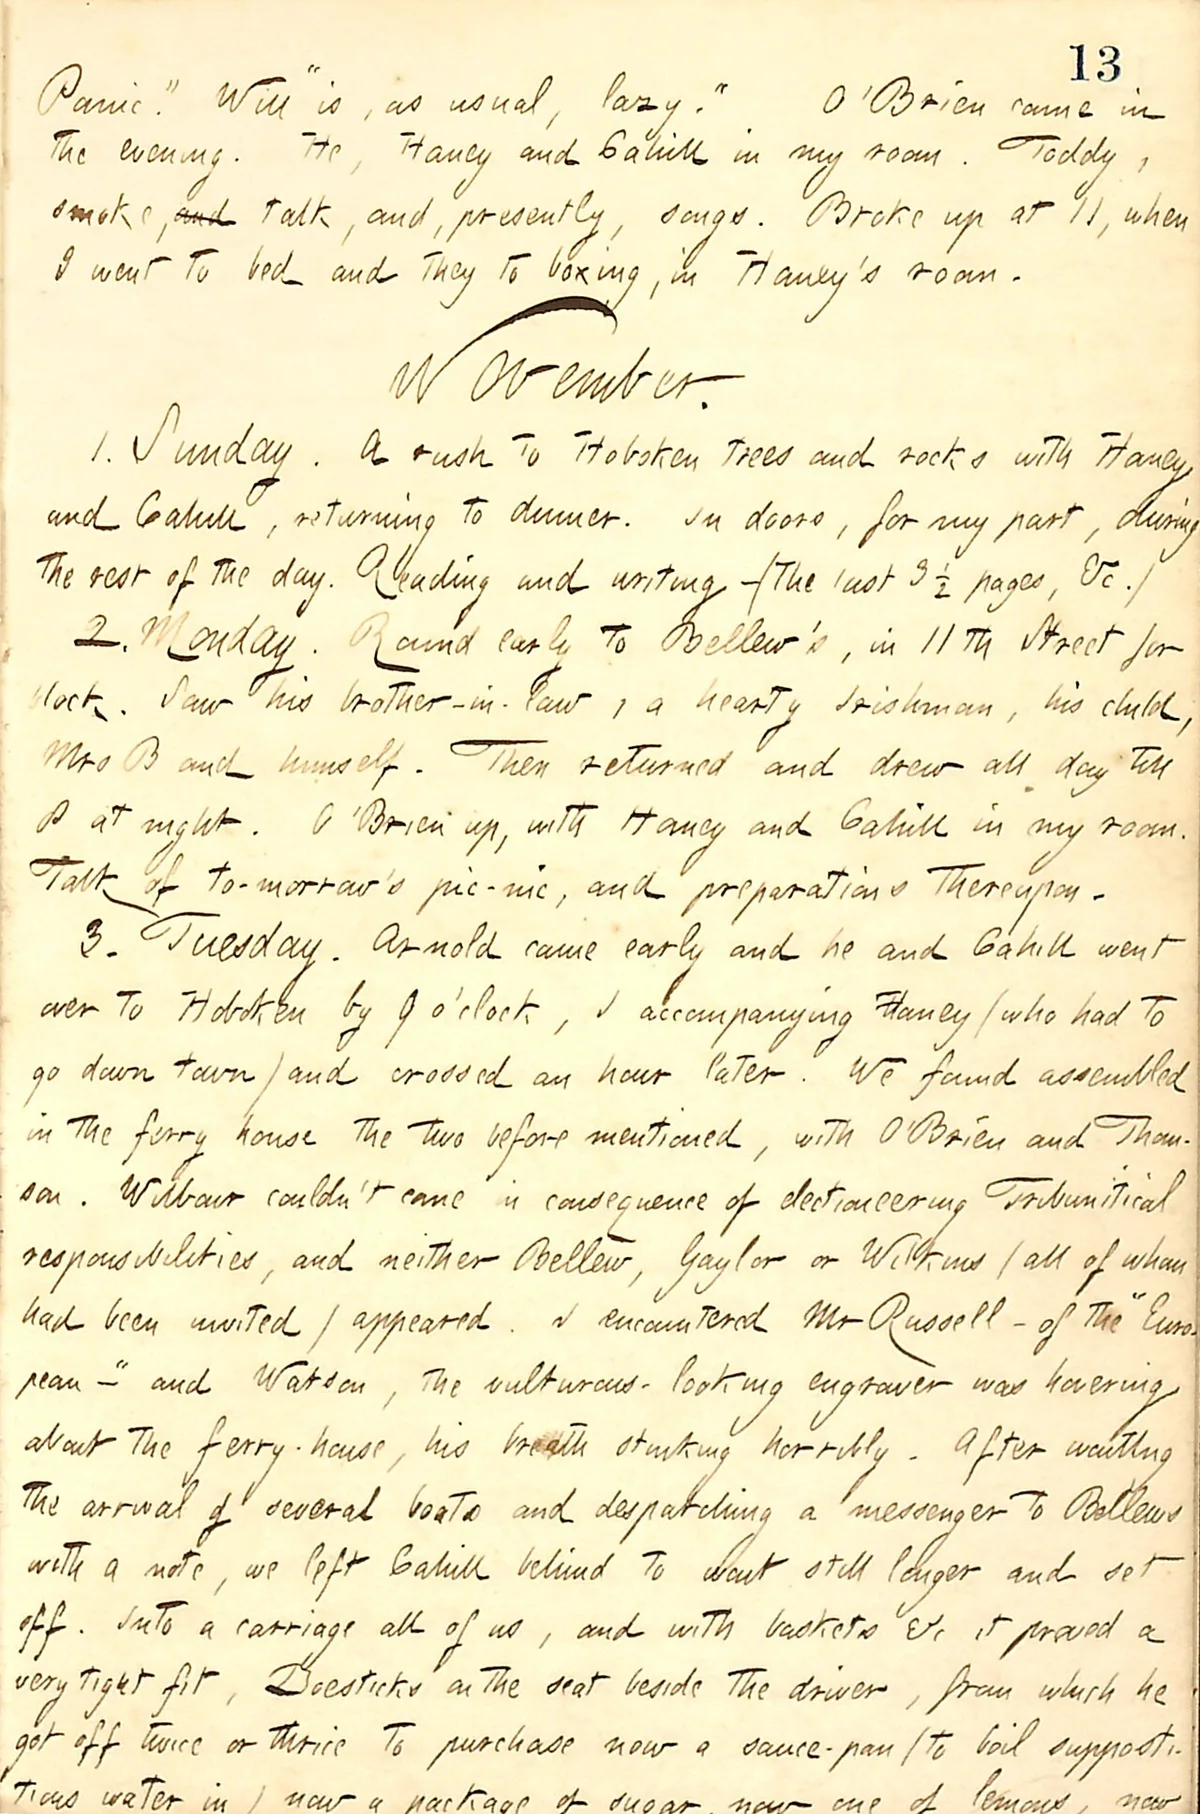 13
Panic." Will "is, as usual, lazy." O'Brien came in
the evening. He, Haney and Cahill in my room. Toddy,
smoke, and talk, and, presently, songs. Broke up at 11, when
I went to bed and they to boxing, in Haney's room.
November.
1. Sunday. A rush to Hoboken trees and rocks with Haney
and Cahill, returning to dinner. In doors, for my part, during
the rest of the day. Reading and writing (the last 3 ½ pages, &c.)
2. Monday. Round early to Bellew's, in 11th Street for
block. Saw his brother-in-law, a hearty Irishman, his child,
Mrs B and himself. Then returned and drew all day till
8 at night. O'Brien up, with Haney and Cahill in my room.
Talk of to-morrow's pic-nic, and preparations thereupon.
3. Tuesday. Arnold came early and he and Cahill went
over to Hoboken by 9 o'clock, I accompanying Haney (who had to
go down town) and crossed an hour later. We found assembled
in the ferry house the two before mentioned, with O'Brien and Thom-
son. Wilbour couldn't come in consequence of electioneering Tribunitical
responsibilities, and neither Bellew, Gaylor or Wilkins (all of whom
had been invited) appeared. I encountered Mr Russell - of the "Euro-
pean -" and Watson, the vulturous-looking engraver was hovering
about the ferry-house, his breath stinking horribly. After waiting
the arrival of several boats and despatching a messenger to Bellews
with a note, we left Cahill behind to wait still longer and set
off. Into a carriage all of us, and with baskets &c it proved a
very tight fit, Doesticks on the seat beside the driver, from which he
got off twice or thrice to purchase now a sauce-pan (to boil supposti-
tious water in) now a package of sugar, now one of lemons, now